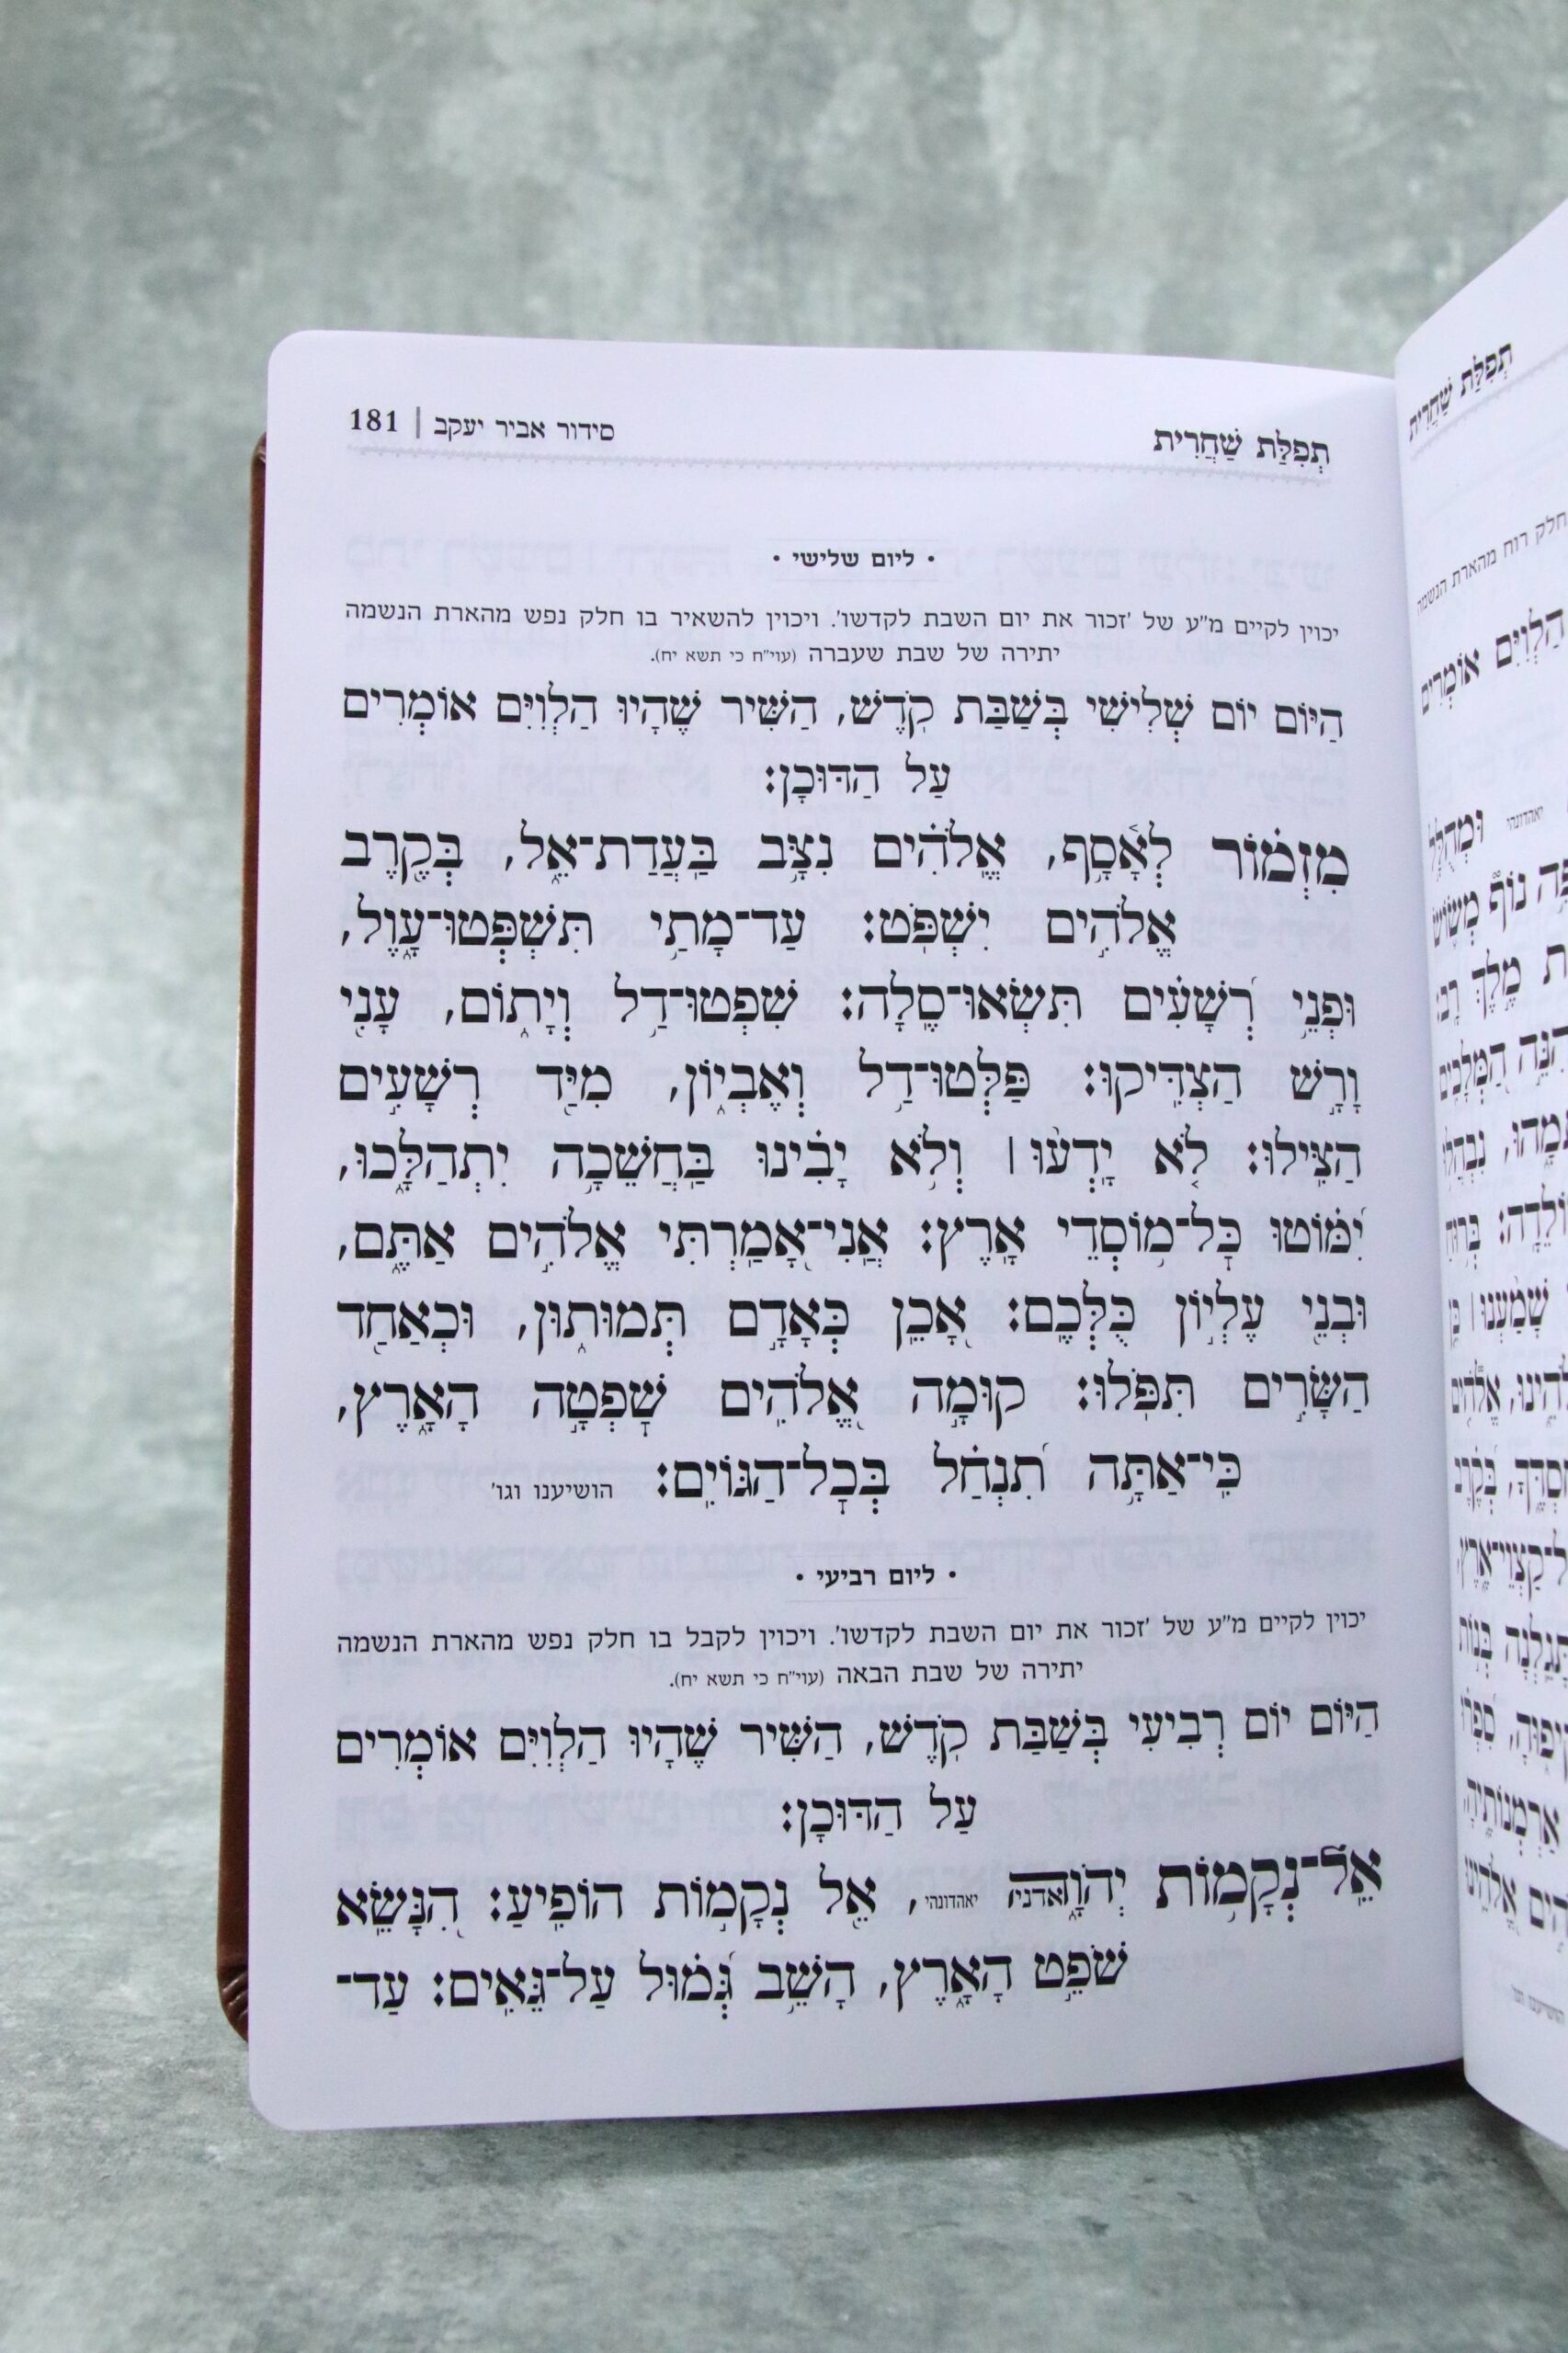 תְּפִלַּת שַׁחֲרִית
סידור אביר יעקב | 181
• ליום שלישי •
יכוין לקיים מ״ע של ׳זכור את יום השבת לקדשו׳. ויכוין להשאיר בו חלק נפש מהארת הנשמה
יתירה של שבת שעברה (עוי״ח כי תשא יח).
הַיּוֹם יוֹם שְׁלִישִׁי בְּשַׁבַּת קֹדֶשׁ, הַשִּׁיר שֶׁהָיוּ הַלְוִיִּם אוֹמְרִים
עַל הַדּוּכָן:
מִזְמ֗וֹר לְאָ֫סָ֥ף, אֱֽלֹהִ֗ים נִצָּ֥ב בַּעֲדַת־אֵ֑ל, בְּקֶ֖רֶב
אֱלֹהִ֣ים יִשְׁפֹּֽט: עַד־מָתַ֥י תִּשְׁפְּטוּ־עָ֑וֶל,
וּפְנֵ֥י רְ֝שָׁעִ֗ים תִּשְׂאוּ־סֶֽלָה: שִׁפְטוּ־דַ֥ל וְיָת֑וֹם, עָנִ֖י
וָרָ֣שׁ הַצְדִּֽיקוּ: פַּלְּטוּ־דַ֥ל וְאֶבְי֑וֹן, מִיַּ֖ד רְשָׁעִ֣ים
הַצִּֽילוּ: לֹ֤א יָֽדְע֨וּ׀ וְלֹ֥א יָבִ֗ינוּ בַּחֲשֵׁכָ֥ה יִתְהַלָּ֑כוּ,
יִ֝מּ֗וֹטוּ כָּל־מ֥וֹסְדֵי אָֽרֶץ: אֲֽנִי־אָ֭מַרְתִּי אֱלֹהִ֣ים אַתֶּ֑ם,
וּבְנֵ֖י עֶלְי֣וֹן כֻּלְּכֶֽם: אָ֭כֵן כְּאָדָ֣ם תְּמוּת֑וּן, וּכְאַחַ֖ד
הַשָּׂרִ֣ים תִּפֹּֽלוּ: קוּמָ֣ה אֱ֭לֹהִים שָׁפְטָ֣ה הָאָ֑רֶץ,
כִּֽי־אַתָּ֥ה תִ֝נְחַ֗ל בְּכָל־הַגּוֹיִֽם: הושיענו וגו׳
• ליום רביעי •
יכוין לקיים מ״ע של ׳זכור את יום השבת לקדשו׳. ויכוין לקבל בו חלק נפש מהארת הנשמה
יתירה של שבת הבאה (עוי״ח כי תשא יח).
הַיּוֹם יוֹם רְבִיעִי בְּשַׁבַּת קֹדֶשׁ, הַשִּׁיר שֶׁהָיוּ הַלְוִיִּם אוֹמְרִים
עַל הַדּוּכָן:
אֵל־נְקָמ֥וֹת יְהֹוָ֑ה אדני יאהדונהי, אֵ֖ל נְקָמ֣וֹת הוֹפִֽיעַ: הִ֭נָּשֵׂא
שֹׁפֵ֣ט הָאָ֑רֶץ, הָשֵׁ֥ב גְּ֝מ֗וּל עַל־גֵּאִֽים: עַד־
תְּפִלַּת שַׁחֲרִית
חלק רוח מהארת הנשמה
הַלְוִיִּם אוֹמְרִים